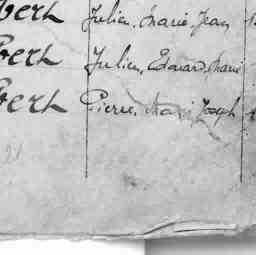 bert Julien, Marie, Jean
bert Julien, Edouard, Marie
bert Pierre, Marie Joseph